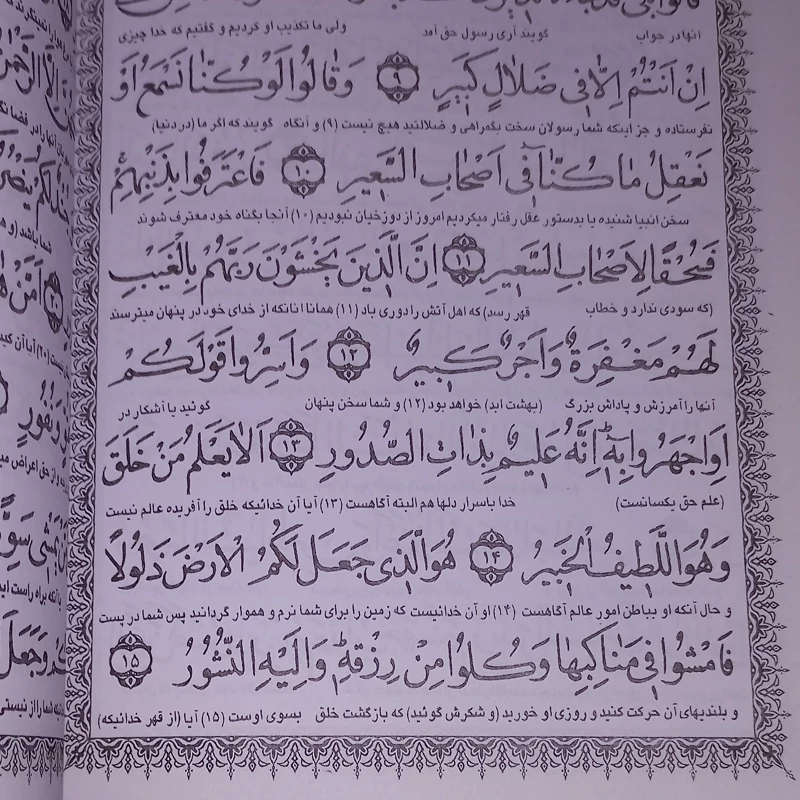 انها در جواب گویند آری رسول حق آمد ولی ما تکذیب او کردیم و گفتیم که خدا چیزی
اِنْ اَنْتُمْ اِلّا فی ضَلالٍ کَبیرٍ ۹ وَ قالُوا لَوْ کُنّا نَسْمَعُ اَوْ
نفرستاده و جز اینکه شما رسولان سخت بگمراهی و ضلالتید هیچ نیست (۹) و آنگاه گویند که اگر ما (در دنیا)
نَعْقِلُ ما کُنّا فی اَصْحابِ السَّعیرِ ۱۰ فَاعْتَرَفُوا بِذَنْبِهِمْ
سخن انبیا شنیده یا بدستور عقل رفتار میکردیم امروز از دوزخیان نبودیم (۱۰) آنجا بگناه خود معترف شوند
فَسُحْقًا لِاَصْحابِ السَّعیرِ ۱۱ اِنَّ الَّذینَ یَخْشَوْنَ رَبَّهُمْ بِالْغَیْبِ
(که سودی ندارد و خطاب قهر رسد) که اهل آتش را دوری باد (۱۱) همانا انانکه از خدای خود در پنهان میترسند
لَهُمْ مَغْفِرَةٌ وَ اَجْرٌ کَبیرٌ ۱۲ وَ اَسِرُّوا قَوْلَکُمْ
آنها را آمرزش و پاداش بزرگ (بهشت ابد) خواهد بود (۱۲) و شما سخن پنهان گوئید یا آشکار در
اَوِ اجْهَرُوا بِهِ اِنَّهُ عَلیمٌ بِذاتِ الصُّدُورِ ۱۳ اَلا یَعْلَمُ مَنْ خَلَقَ
(علم حق یکسانست) خدا باسرار دلها هم البته آگاهست (۱۳) آیا آن خدائیکه خلق را آفریده عالم نیست
وَ هُوَ اللَّطیفُ الْخَبیرُ ۱۴ هُوَ الَّذی جَعَلَ لَکُمُ الْاَرْضَ ذَلُولًا
و حال آنکه او بباطن امور عالم آگاهست (۱۴) او آن خدائیست که زمین را برای شما نرم و هموار گردانید پس شما در پست
فَامْشُوا فی مَناکِبِها وَ کُلُوا مِنْ رِزْقِهِ وَ اِلَیْهِ النُّشُورُ ۱۵
و بلندیهای آن حرکت کنید و روزی او خورید (و شکرش گوئید) که بازگشت خلق بسوی اوست (۱۵) آیا (از قهر خدائیکه)